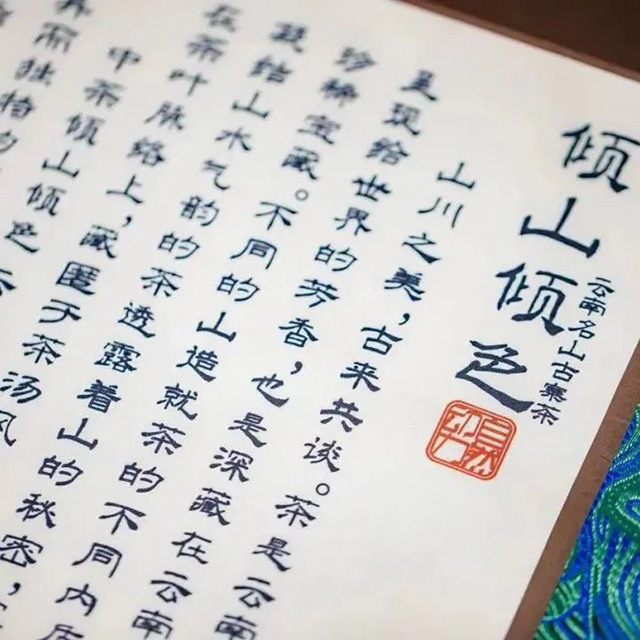 倾山倾色
云南名山古寨茶
自然
山川之美，古来共谈。茶是云南
呈现给世界的芳香，也是深藏在云南
珍稀宝藏。不同的山造就茶的不同内
凝结山水气韵的茶透露着山的秘密，
在茶叶脉络上，藏匿于茶汤风
中茶倾山倾色